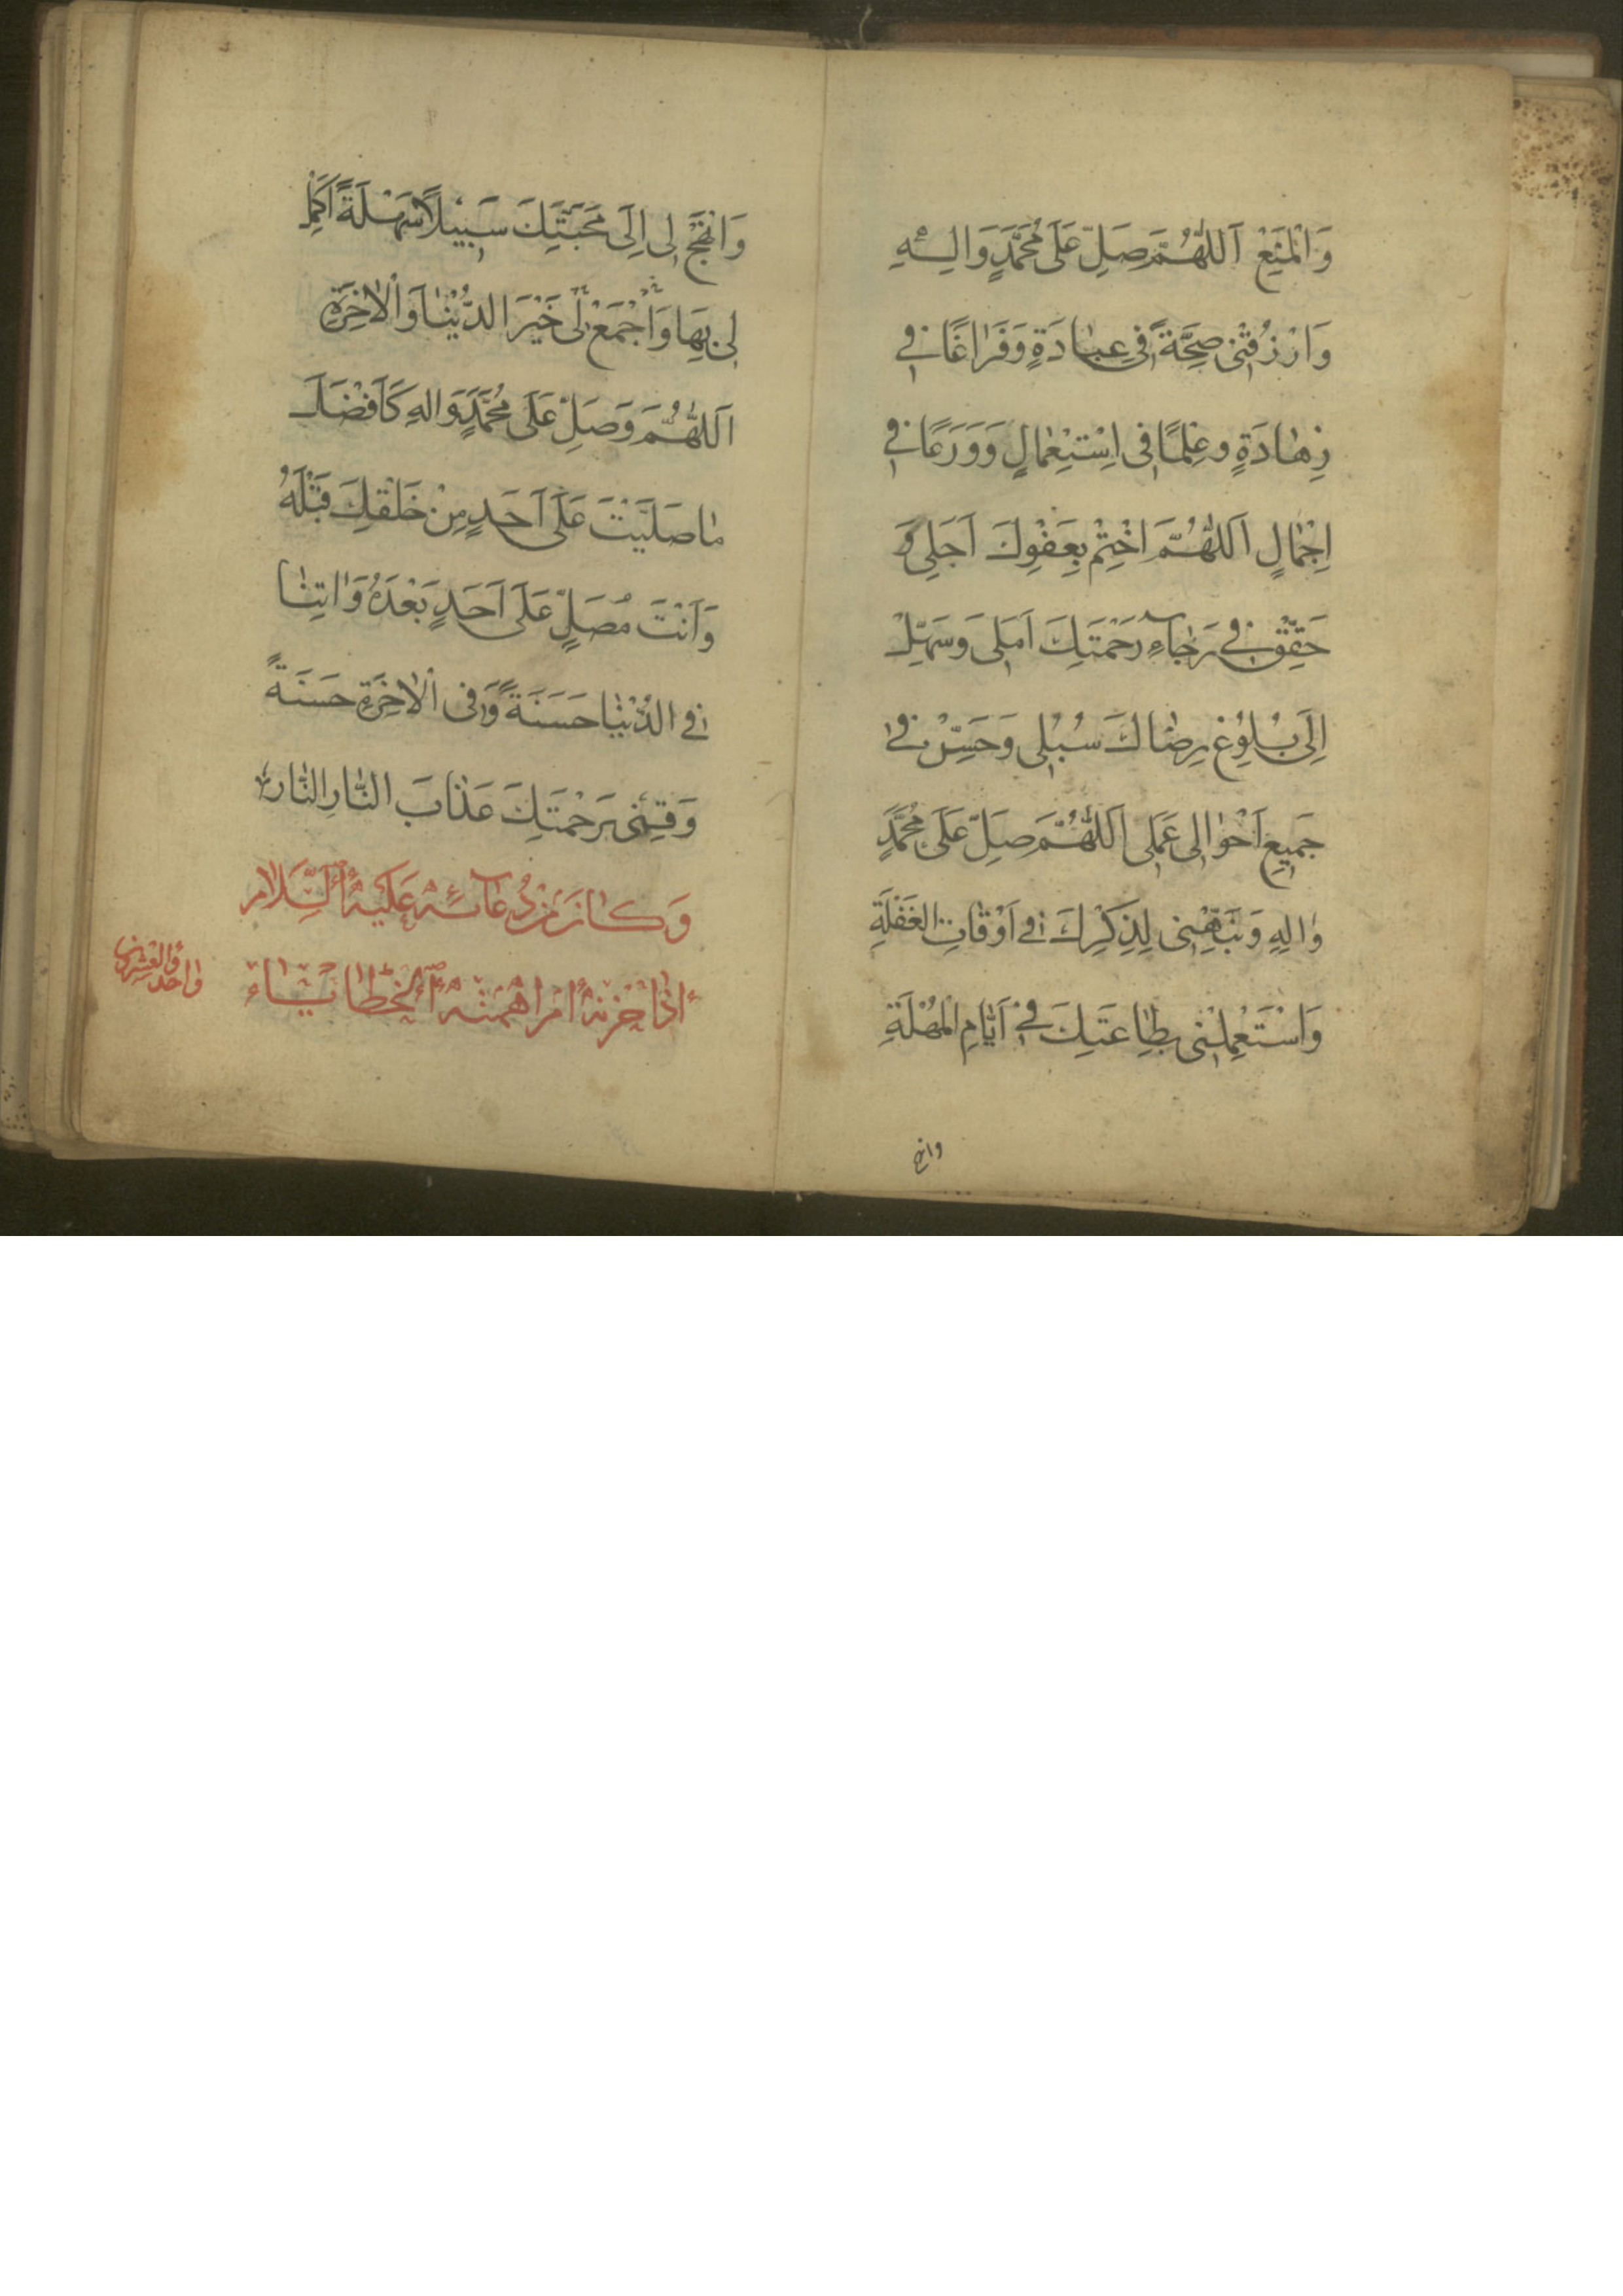 وَالْمَنْعِ اَللّٰهُمَّ صَلِّ عَلَى مُحَمَّدٍ وَالِهِ
وَارْزُقْنِي صِحَّةً فِي عِبَادَةٍ وَفَرَاغًا فِي
زِهَادَةٍ وعِلْمًا فِي اِسْتِعْمَالٍ وَوَرَعًا فِي
اِجْمَالٍ اَللّٰهُمَّ اخْتِمْ بِعَفْوِكَ اَجَلِي وَ
حَقِّقْ فِي رَجَاءِ رَحْمَتِكَ اَمَلِي وَسَهِّلْ
اِلَى بُلُوغِ رِضَاكَ سُبُلِي وَحَسِّنْ فِي
جَمِيعِ اَحْوَالِي عَمَلِي اَللّٰهُمَّ صَلِّ عَلَى مُحَمَّدٍ
وَالِهِ وَنَبِّهْنِي لِذِكْرِكَ فِي اَوْقَاتِ الغَفْلَةِ
وَاسْتَعْمِلْنِي بِطَاعَتِكَ فِي اَيَّامِ الْمُهْلَةِ
وانهج
وَانْهَجْ لِي اِلَى مَحَبَّتِكَ سَبِيلًا سَهْلَةً اَكْمِلْ
لِي بِهَا وَاجْمَعْ لِي خَيْرَ الدُّنْيَا وَالْاخِرَةِ
اَللّٰهُمَّ وَصَلِّ عَلَى مُحَمَّدٍ وَالِهِ كَاَفْضَلِ
مَا صَلَّيْتَ عَلَى اَحَدٍ مِنْ خَلْقِكَ قَبْلَهُ
وَاَنْتَ مُصَلٍّ عَلَى اَحَدٍ بَعْدَهُ وَاتِنَا
فِي الدُّنْيَا حَسَنَةً وَفِي الْاخِرَةِ حَسَنَةً
وَقِنِي بِرَحْمَتِكَ عَذَابَ النَّارِ النَّار
وَكَانَ مِنْ دُعَائِهِ عَلَيْهِ السَّلَام
اذَا حزنهُ امر اهمته الخطايا
واحد والعشرون